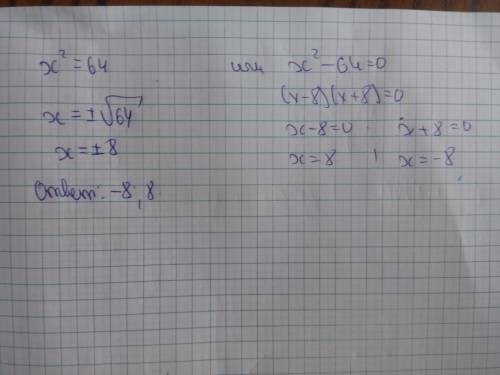 x² = 64
x = ±√64
x = ±8
Ответ: -8, 8
или x² - 64 = 0
(x-8)(x+8)=0
x-8=0, x+8=0
x=8, x=-8